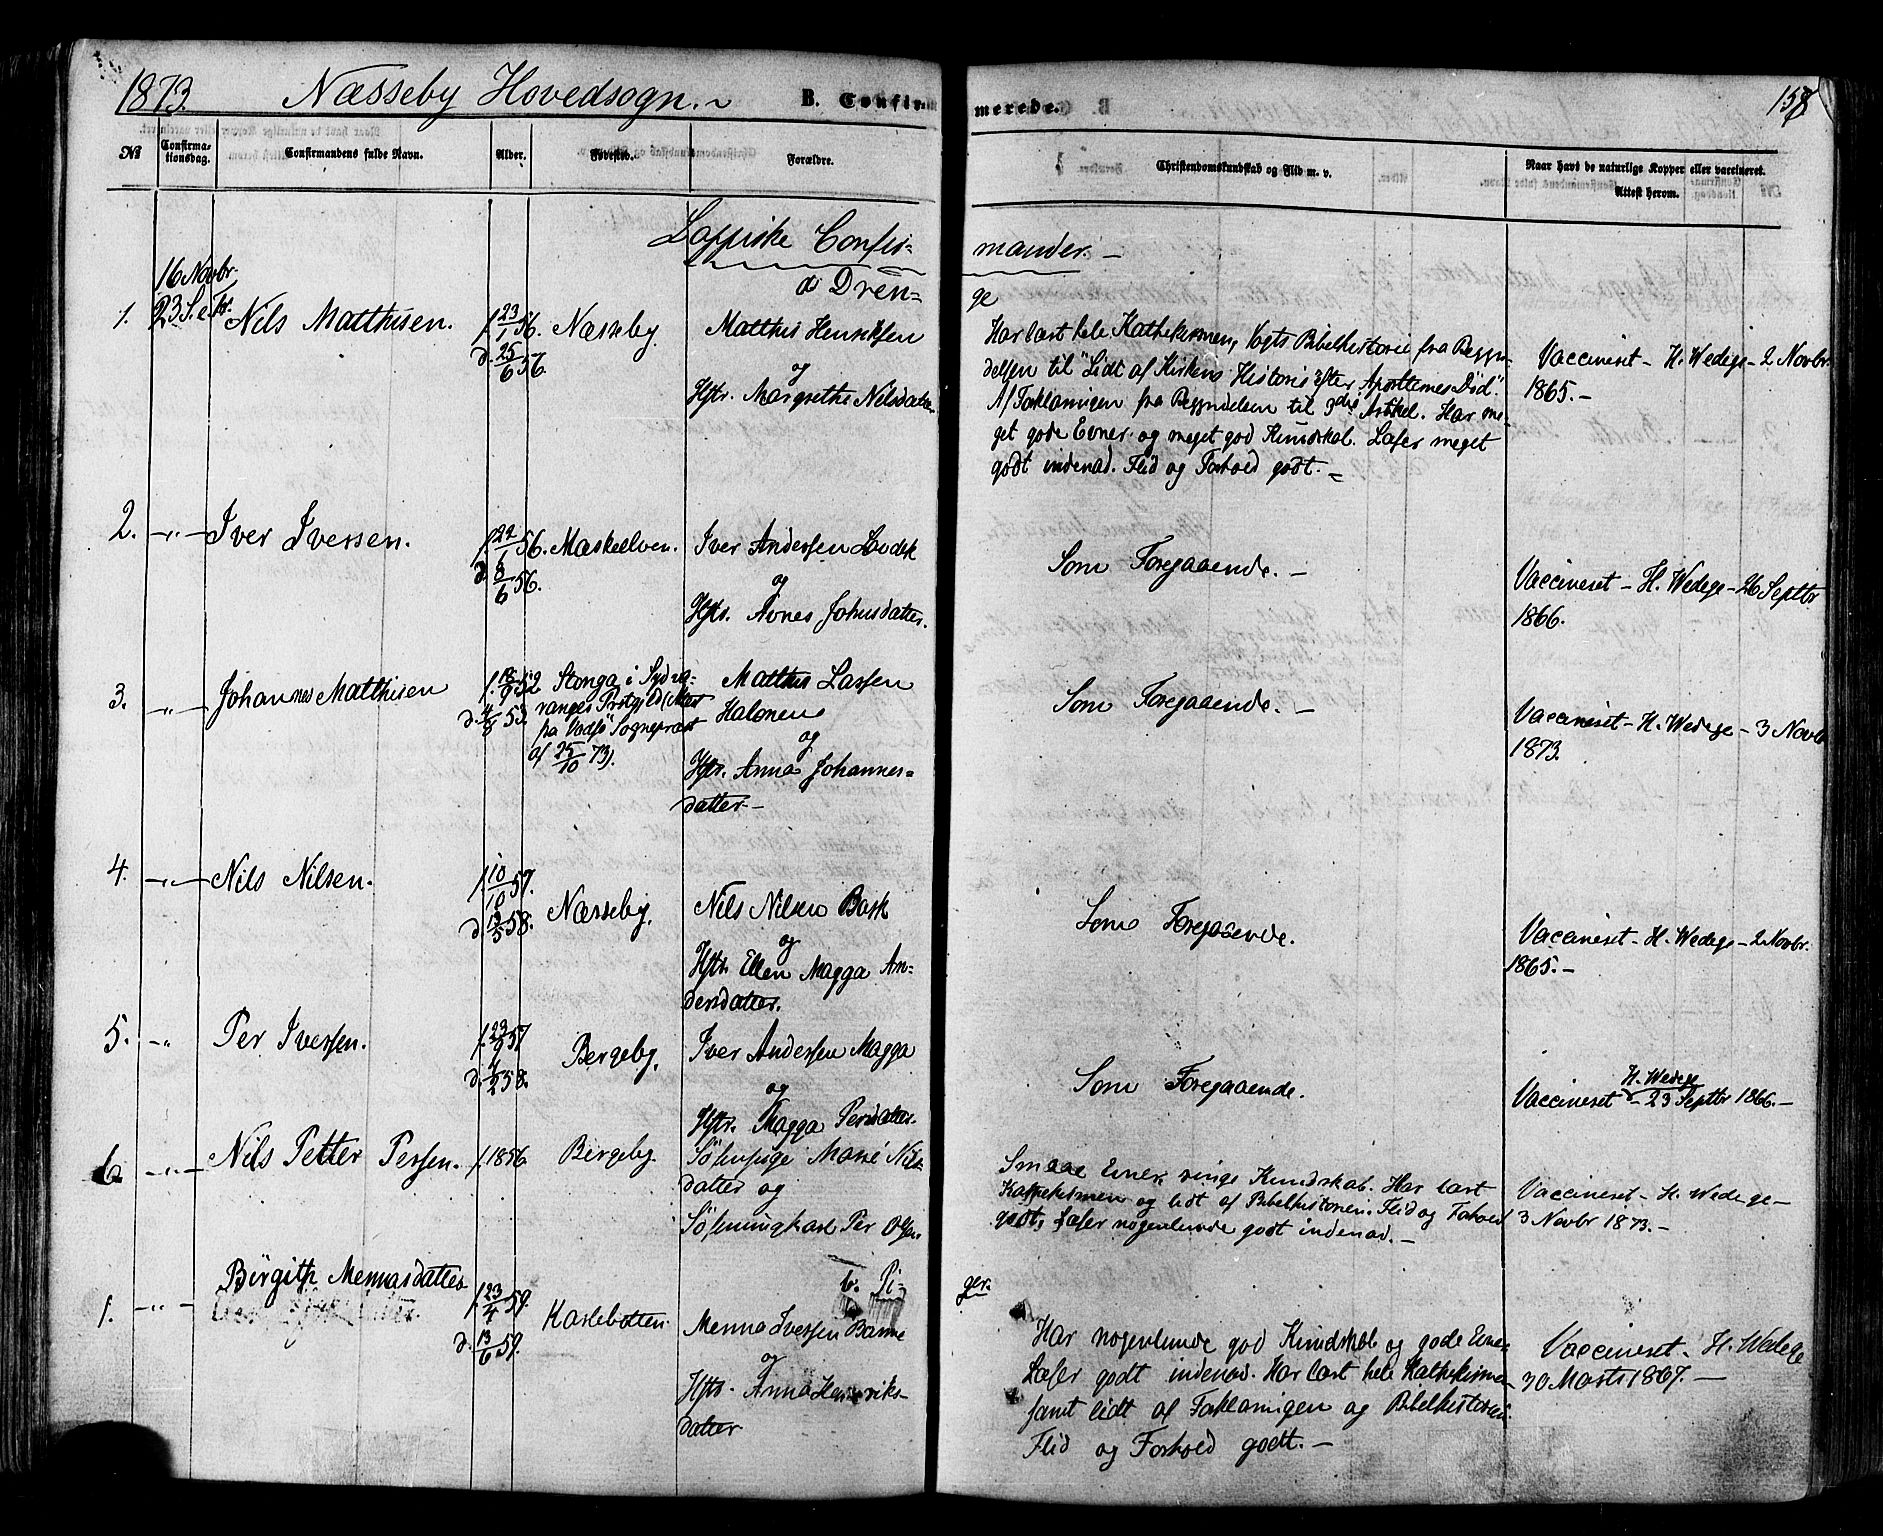 1873. Næsseby Hovedsogn. B. Confirmerede. 158
№ Confirmationsdag. Confirmandens fulde Navn. Alder. Fødested. Forældre. Christendomskundskab og Flid m. v. Naar havt de naturlige Kopper eller vaccineret. Attest herom.
Lappiske Confirmander. —
a. Drenge
16 Novbr.
1. 23 S. e. Tr. Nils Matthisen. f. 23/1 56. Næsseby. Matthis Henriksen
d. 25/6 56.
og
Hstr. Margrethe Nilsdatter.
Har læst hele Kathekismen, Vogts Bibelhistorie fra Begyn-
delsen til "Lidt af Kirkens Historie efter Apostlernes Død."
Af Forklaringen fra Begyndelsen til 3die Artikel. Har me-
get gode Evner og meget god Kundskab. Læser meget
godt indenad. Flid og Forhold godt. —
Vaccineret — H. Wedege — 2 Novbr
1865. —
2. — „ — Iver Iversen. f. 22/1 56. Maskeelven. Iver Andersen
d. 8/6 56.
og
Hstr. Johnsdatter.
Som Foregaaende. —
Vaccineret — H. Wedege — 26 Septbr
1866.
3. — „ — Johannes Matthisen f. 18/9 52 Stonga i Sydva- Matthis Lassen
d. 4/8 53. ranger Prstgjld (Attest Halonen
fra Vadsø Sognepræst og
af 25/10 73). Hstr. Anna Johannes-
datter —
Som Foregaaende. —
Vaccineret — H. Wedege — 3 Novbr
1873.
4. — „ — Nils Nilsen. f. 10/10 57. Næsseby. Nils Nilsen Bask
d. 13/5 58.
og
Hstr. Ellen Magga An-
dersdatter.
Som Foregaaende.
Vaccineret — H. Wedege — 2 Novbr.
1865. —
5. — „ Per Iversen. f. 23/9 57 Bergeby. Iver Andersen Magga
d. 4/2 58.
og
Hstr. Magga Persdatter.
Som Foregaaende.
H. Wedege
Vaccineret — 23 Septbr 1866. —
6 — „ — Nils Petter Persen. f. 1856. Bergeby. Marie Nils-
datter og
Per Olsen.
Smaae Evner, ringe Kundskab. Har læst
Kathekismen og lidt af Bibelhistorien. Flid og Forhold
godt, Læser nogenlunde godt indenad. —
Vaccineret — H. Wedege —
3 Novbr 1873. —
b. Piger.
1. — „ — Birgith Mennasdatter f. 23/4 59. Karlebotten. Menna Iversen Banne
d. 13/6 59.
og
Hstr. Anna Henriks-
datter
Har nogenlunde god Kundskab og gode Evner
Læser godt indenad. Har læst hele Kathekismen
samt lidt af Forklaringen og Bibelhistorien.
Flid og Forhold godt. —
Vaccineret — H. Wedege
30 Marts 1867. —